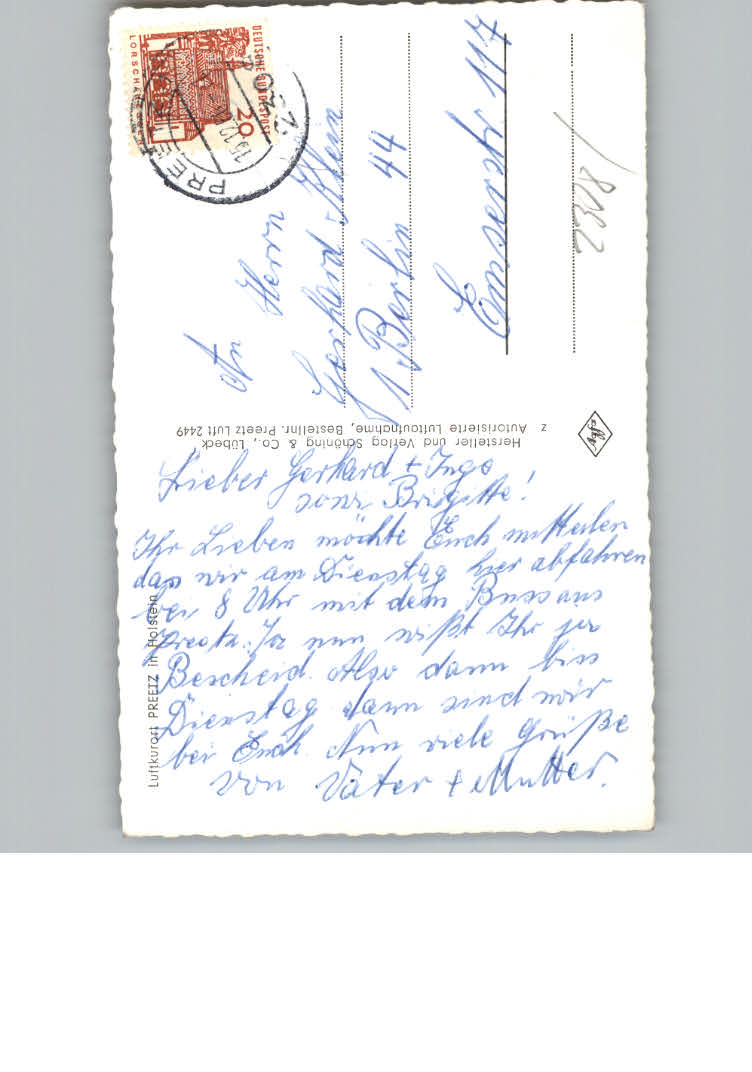 DEUTSCHE BUNDESPOST
20
LORSCH
PREETZ
An Herrn
Gerhard Klein
1 Berlin 44
Emserstr. 117
2308
Hersteller und Verlag Schöning & Co., Lübeck
z Autorisierte Luftaufnahme, Bestellnr. Preetz Luft 2449
Agfa
Luftkurort PREETZ in Holstein
Lieber Gerhard + Inge
sowie Brigitte!
Ihr Lieben möchte Euch mitteilen
das wir am Dienstag hier abfahren
bei 8 Uhr mit dem Buss aus
Preetz. So nun wißt Ihr ja
Bescheid. Also dann biss
Dienstag dann sind wir
bei Euch. Nun viele Grüße
von Vater + Mutter.